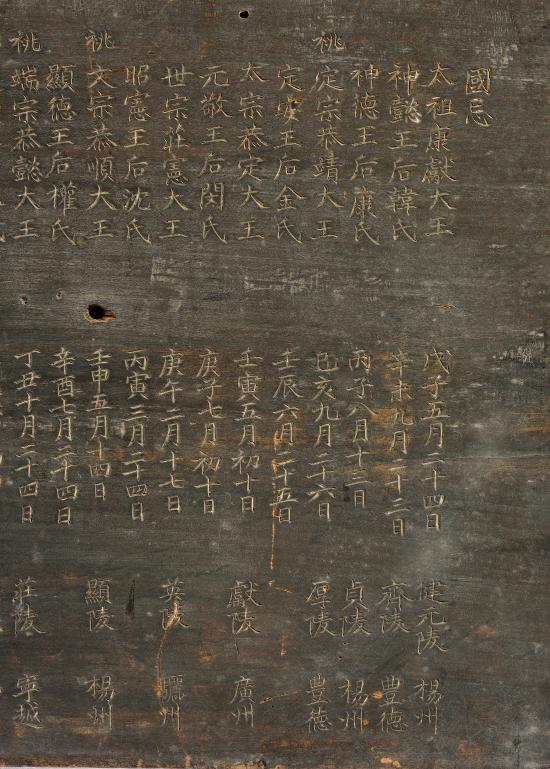 國忌
太祖康獻大王 戊子五月二十四日 健元陵 楊州
神懿王后韓氏 辛未九月二十三日 齊陵 豊德
神德王后康氏 丙子八月十三日 貞陵 楊州
祧 定宗恭靖大王 己亥九月二十六日 厚陵 豊德
定安王后金氏 壬辰六月二十五日
太宗恭定大王 壬寅五月初十日 獻陵 廣州
元敬王后閔氏 庚子七月初十日
世宗莊憲大王 庚午二月十七日 英陵 驪州
昭憲王后沈氏 丙寅三月二十四日
祧 文宗恭順大王 壬申五月十四日 顯陵 楊州
顯德王后權氏 辛酉七月二十四日
祧 端宗恭懿大王 丁丑十月二十四日 莊陵 寧越